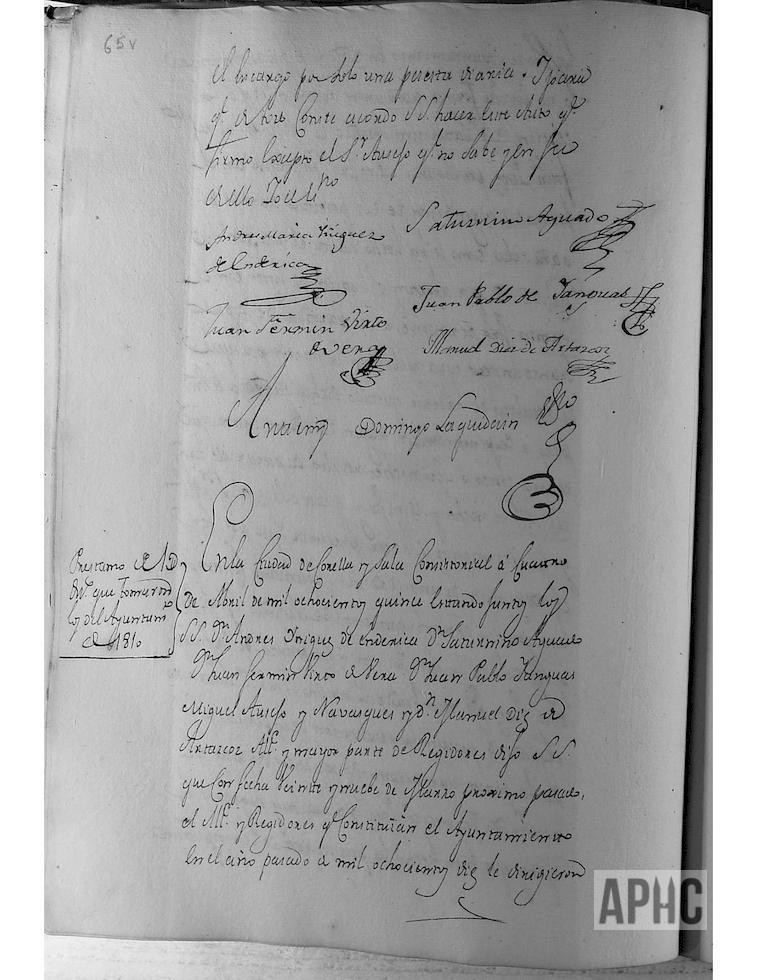 65v
el encargo por solo una peseta diaria. Y para
q.e de todo Conste acordo S.S. hacer este Auto q.e
firmo Excepto el S.r Ausejo q.e no Sabe y en fee
de ello Yo el Ss.no
Andres Maria Yñiguez
de Enderica
Saturnino Aguado
Juan Pablo de Yanguas
Juan Fermin Virto
de Vera
Manuel Diez de Artazcoz
Ante mi Domingo Laquidain Ss.no
Prestamo de
que tomaron
los del Ayuntam.to
de 1810
En la Ciudad de Corella y Sala Consistorial á Cuatro
de Abril de mil ochocientos quince estando juntos los
S.S. D.n Andres Yñiguez de Enderica D.n Saturnino Aguado
D.n Juan Fermin Virto de Vera D.n Juan Pablo Yanguas
Miguel Ausejo y Navasques y D.n Manuel Diez de
Artazcoz Alc.e y mayor parte de Regidores dijo S.S.
que Con fecha Veinte y nuebe de Marzo proximo pasado,
el Alc.e y Regidores q.e Constituían el Ayuntamiento
en el año pasado de mil ochocientos diez le dirigieron
APHC